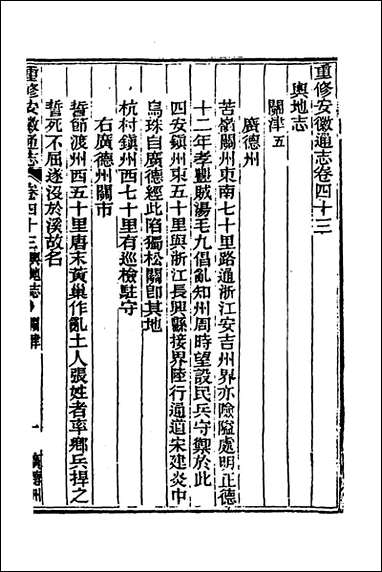 重修安徽通志卷四十三
輿地志
關津五
廣德州
苦嶺關州東南七十里路通浙江安吉州界亦險隘處明正德
十二年孝豐賊湯毛九倡亂知州周時望設民兵守禦於此
四安鎮州東五十里與浙江長興縣接界陸行通道宋建炎中
烏珠自廣德經此陷獨松關卽其地
杭村鎮州西七十里有巡檢駐守
右廣德州關市
誓節渡州西五十里唐末黃巢作亂土人張姓者率鄉兵捍之
誓死不屈遂沒於溪故名
重修安徽通志
卷四十三 輿地志 關津
一
廣德州